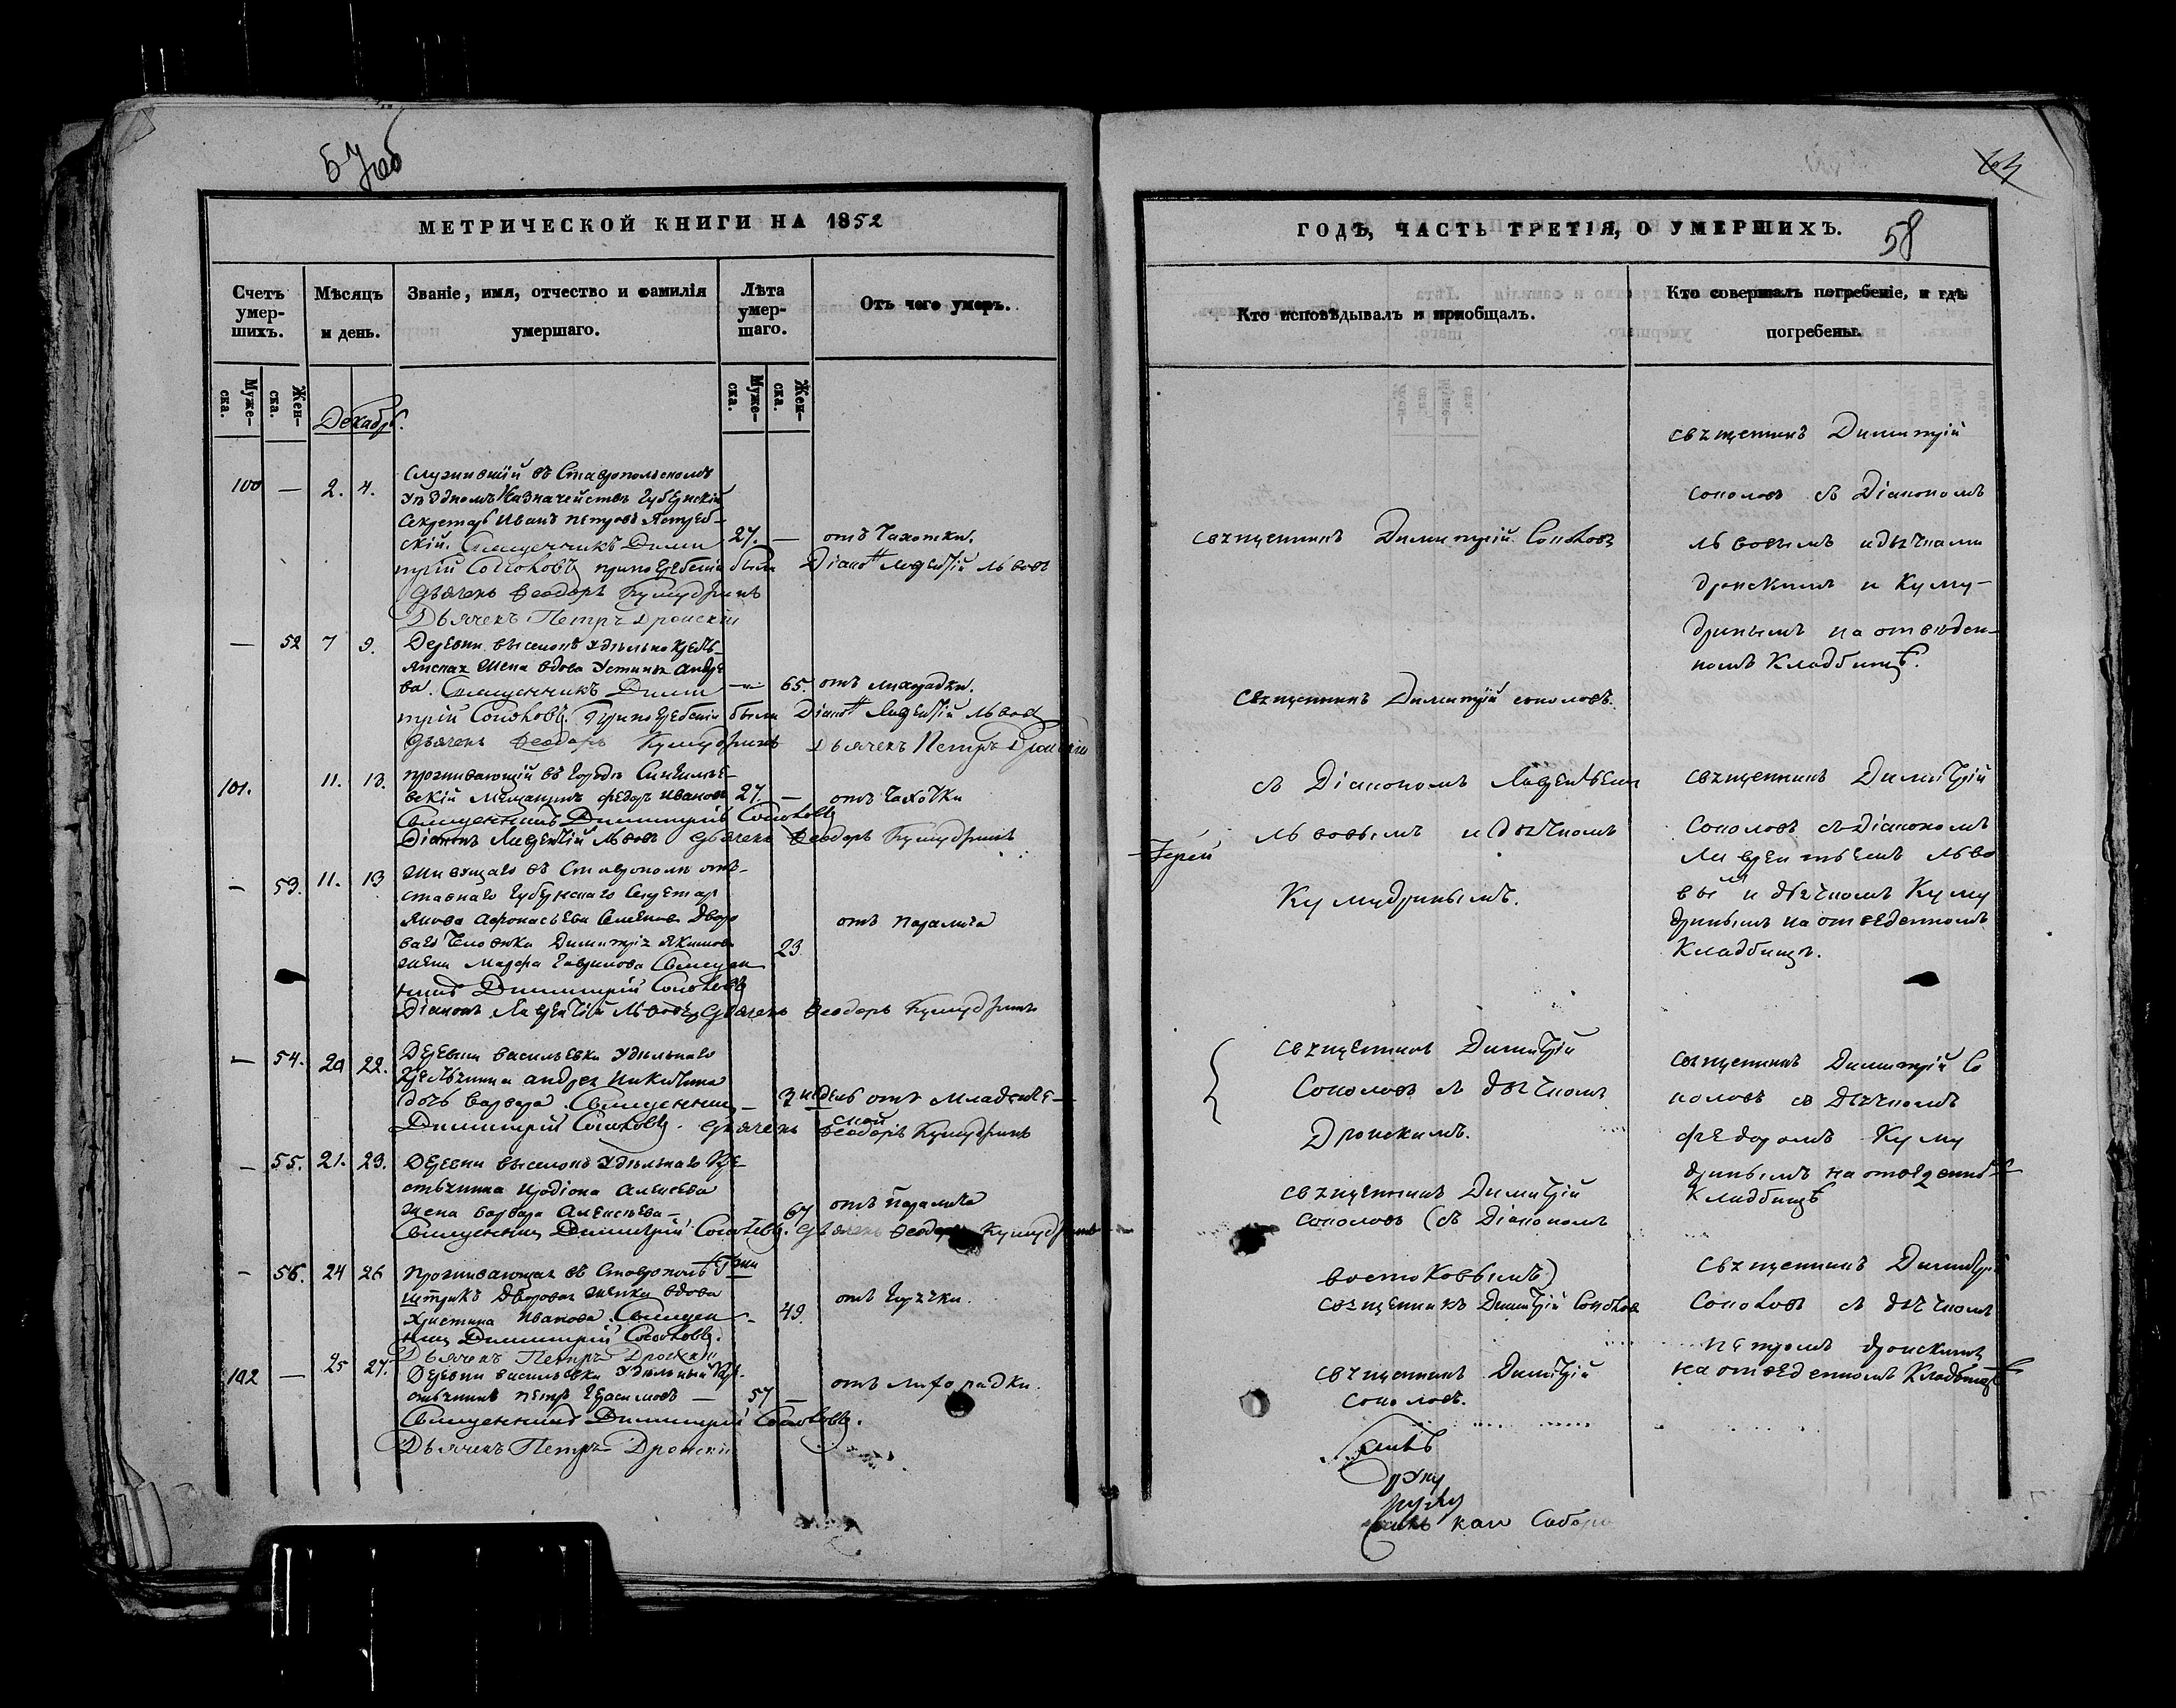 58
МЕТРИЧЕСКОЙ КНИГИ НА 1852
ГОДЪ, ЧАСТЬ ТРЕТІЯ, О УМЕРШИХЪ.
Счетъ умер-
шихъ.
Мѣсяцъ
и день.
Званіе, имя, отчество и фамилія
умершаго.
Лѣта
умер-
шаго.
Отъ чего умеръ.
Муже-
ска.
Жен-
ска.
Муже-
ска.
Жен-
ска.
Декабрь.
100 — 2. 4.
Служившій въ Ставропольскомъ
Уѣздномъ Казначействѣ Губернскій
Секретарь Иванъ Петровъ Ястреб-
скій. Священникъ Дими 27. — отъ Чахотки.
трій Соколовъ при погребеніи были Діаконъ Лаврентій Львовъ
Дьячекъ Феодоръ Кумудринъ
Дьячекъ Петръ Дронскій
— 52 7 9.
Деревни выселокъ удѣльно крестъ-
янская жена вдова Устинья Андре
ва. Священникъ Дими — 65. отъ лихорадки.
трій Соколовъ. При погребеніи были Діаконъ Лаврентій Львовъ
Дьячекъ Феодоръ Кумудринъ Дьячекъ Петръ Дронскій
101. 11. 13.
проживающій въ городѣ Сингилѣе-
вскій Мещанинъ Федоръ Ивановъ 27 — отъ Чахотки
Священникъ Димитрій Соколовъ
Діаконъ Лаврентій Львовъ Дьячекъ Феодоръ Кумудринъ
— 53. 11. 13
Живущаго въ Ставрополѣ отъ-
ставнаго Губернскаго Секретаря
Якова Афонасьева Семенова Дворо
ваго Человека Димитрія Якимова
жена Марфа Гаврилова Священ 23. отъ паралича
никъ Димитрій Соколовъ
Діаконъ Лаврентій Львовъ Дьячекъ Феодоръ Кумудринъ
— 54. 20 22.
Деревни Васильевки Удѣльнаго
крестьянина Андрея Никитина
дочь Варвара. Священникъ — 3 недѣль отъ младенче-
ской
Димитрій Соколовъ. Дьячекъ Феодоръ Кумудринъ
— 55. 21. 23.
Деревни выселокъ Удѣльнаго Кре-
стьянина Иродіона Алексеева
жена Варвара Алексѣева — 67 отъ паралича
Священникъ Димитрій Соколовъ. Дьячекъ Феодоръ Кумудринъ
— 56. 24 26
Проживающая въ Ставрополѣ Г-жи
Дворовая женка вдова
Христина Иванова. Священ — 49. отъ горячки.
никъ Димитрій Соколовъ.
Дьячекъ Петръ Дронскій
102 — 25 27.
Деревни Васильевки Удѣльный Кре-
стьянинъ Петръ Герасимовъ — 57 — отъ лихорадки.
Священникъ Димитрій Соколовъ.
Дьячекъ Петръ Дронскій
Кто исповѣдывалъ и пріобщалъ.
священникъ Димитрій Соколовъ
священникъ Димитрій соколовъ.
съ Діакономъ Лаврентьемъ
Львовымъ и дьячкомъ
Іерей
Кумудринымъ.
священникъ Димитрій
Соколовъ съ дьячкомъ
Дронскимъ.
священникъ Димитрій
соколовъ (съ Діакономъ
востоковымъ)
священникъ Димитрій Соколов
священникъ Димитрій
Соколовъ.
Кто совершалъ погребеніе, и гдѣ
погребены.
священникъ Димитрій
соколовъ съ Діакономъ
львовымъ и дьячками
дронскимъ и Куму-
дринымъ на отведен-
номъ Кладбищѣ.
священникъ Димитрій
Соколовъ съ Діакономъ
Лаврентьемъ Льво
вым и дьячкомъ Куму
дринымъ на отведенномъ
Кладбищѣ.
священникъ Димитрій Со
коловъ съ Дьячкомъ
Федоромъ Куму
дринымъ на отведенномъ
Кладбищѣ
священникъ Димитрій
Соколовъ съ дьячкомъ
петромъ дронскимъ
на отведенномъ Кладбищѣ